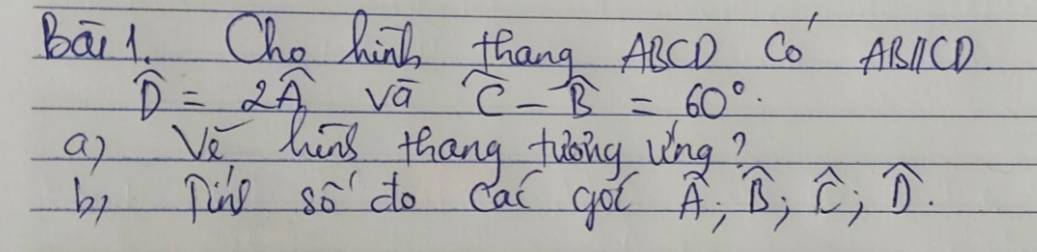 Bài 1. Cho hình thang ABCD có AB//CD.
D̂ = 2Â và Ĉ - B̂ = 60°.
a) Vẽ hình thang tương ứng?
b) Tính số đo các góc Â; B̂; Ĉ; D̂.